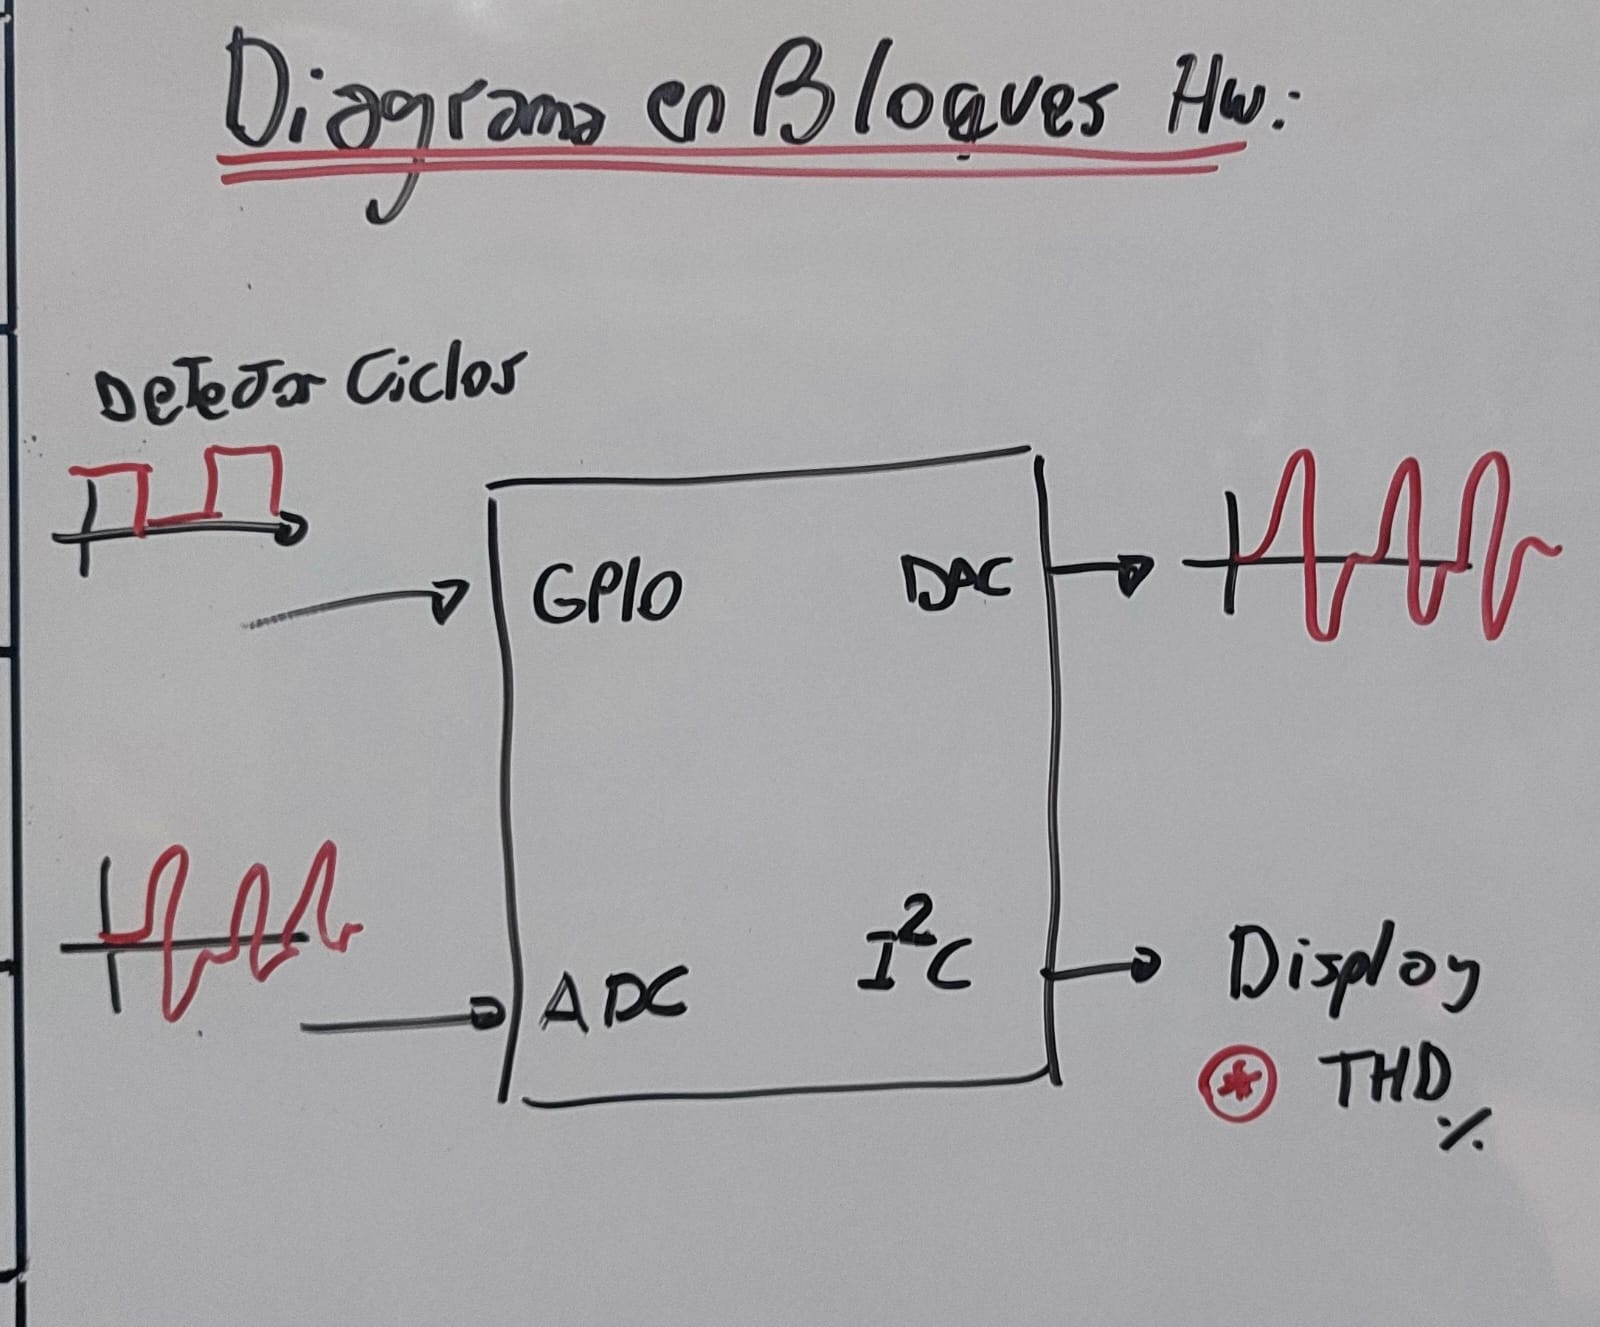 Diagrama en Bloques Hw:
Detector Ciclos
GPIO
DAC
ADC
I²C
Display
* THD
%